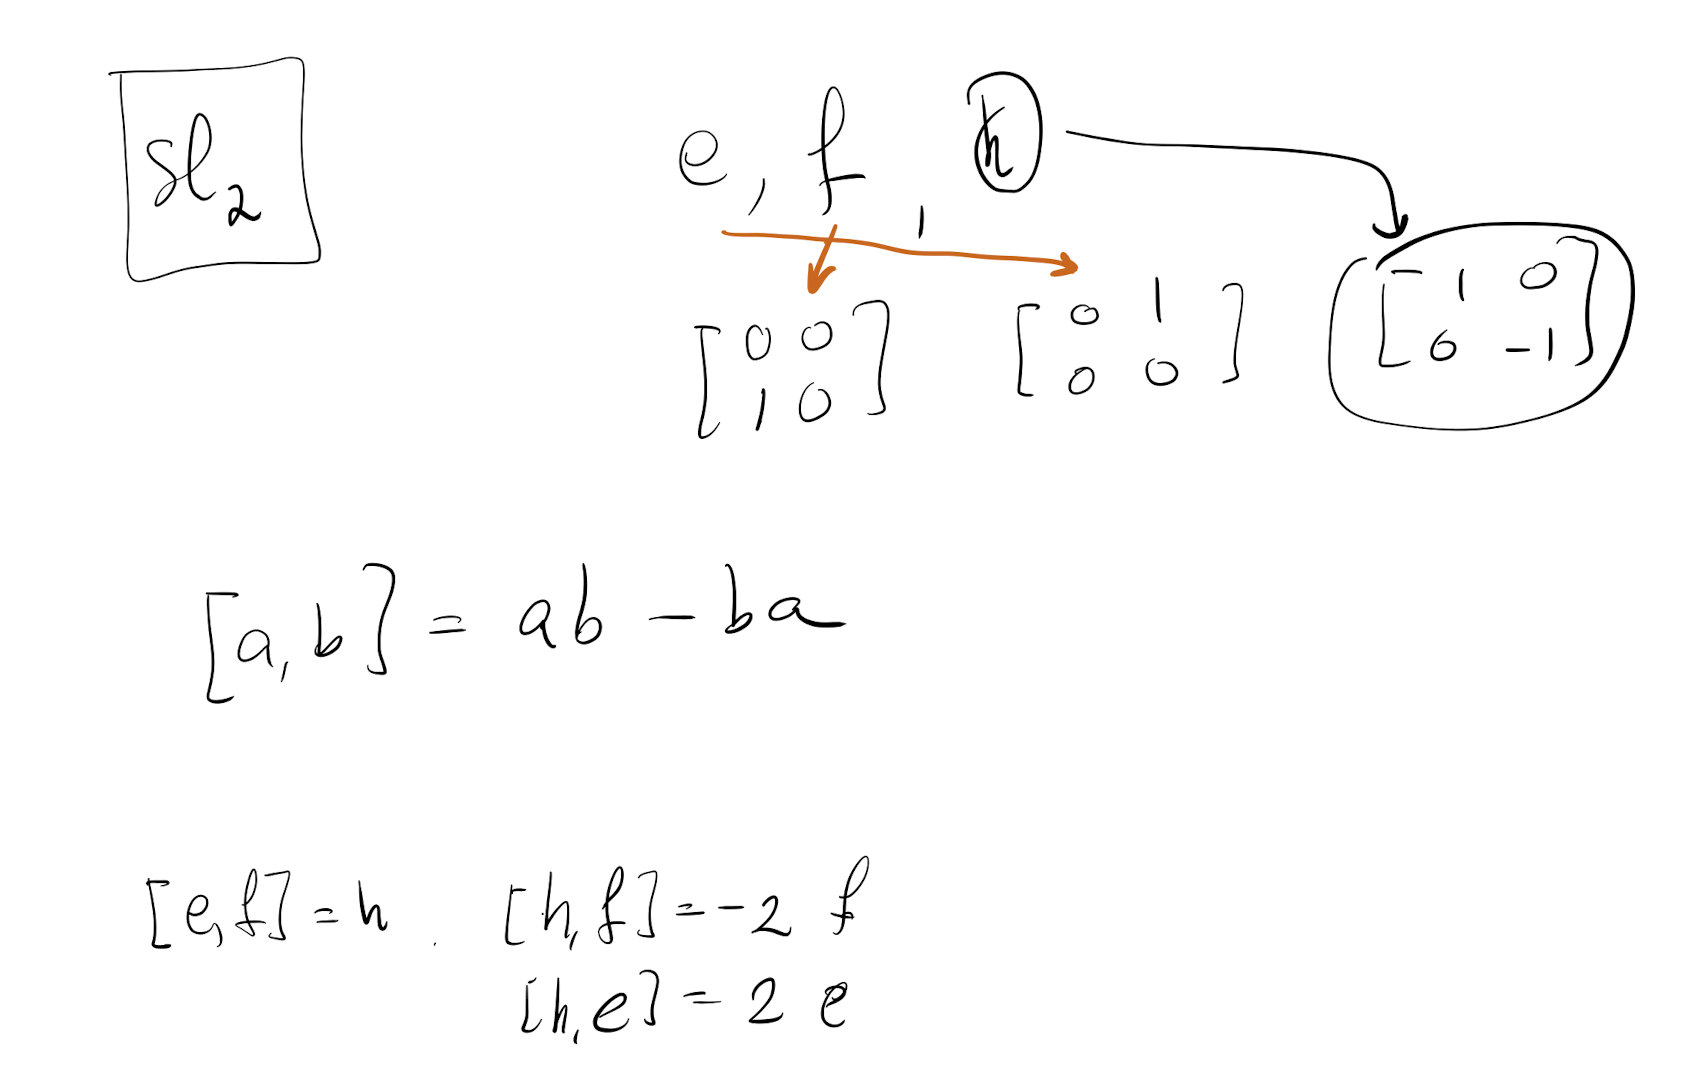 sl₂
e, f, h
[0 0
1 0] [0 1
0 0] [1 0
0 -1]
[a,b] = ab - ba
[e,f] = h. [h,f] = -2 f
[h,e] = 2 e